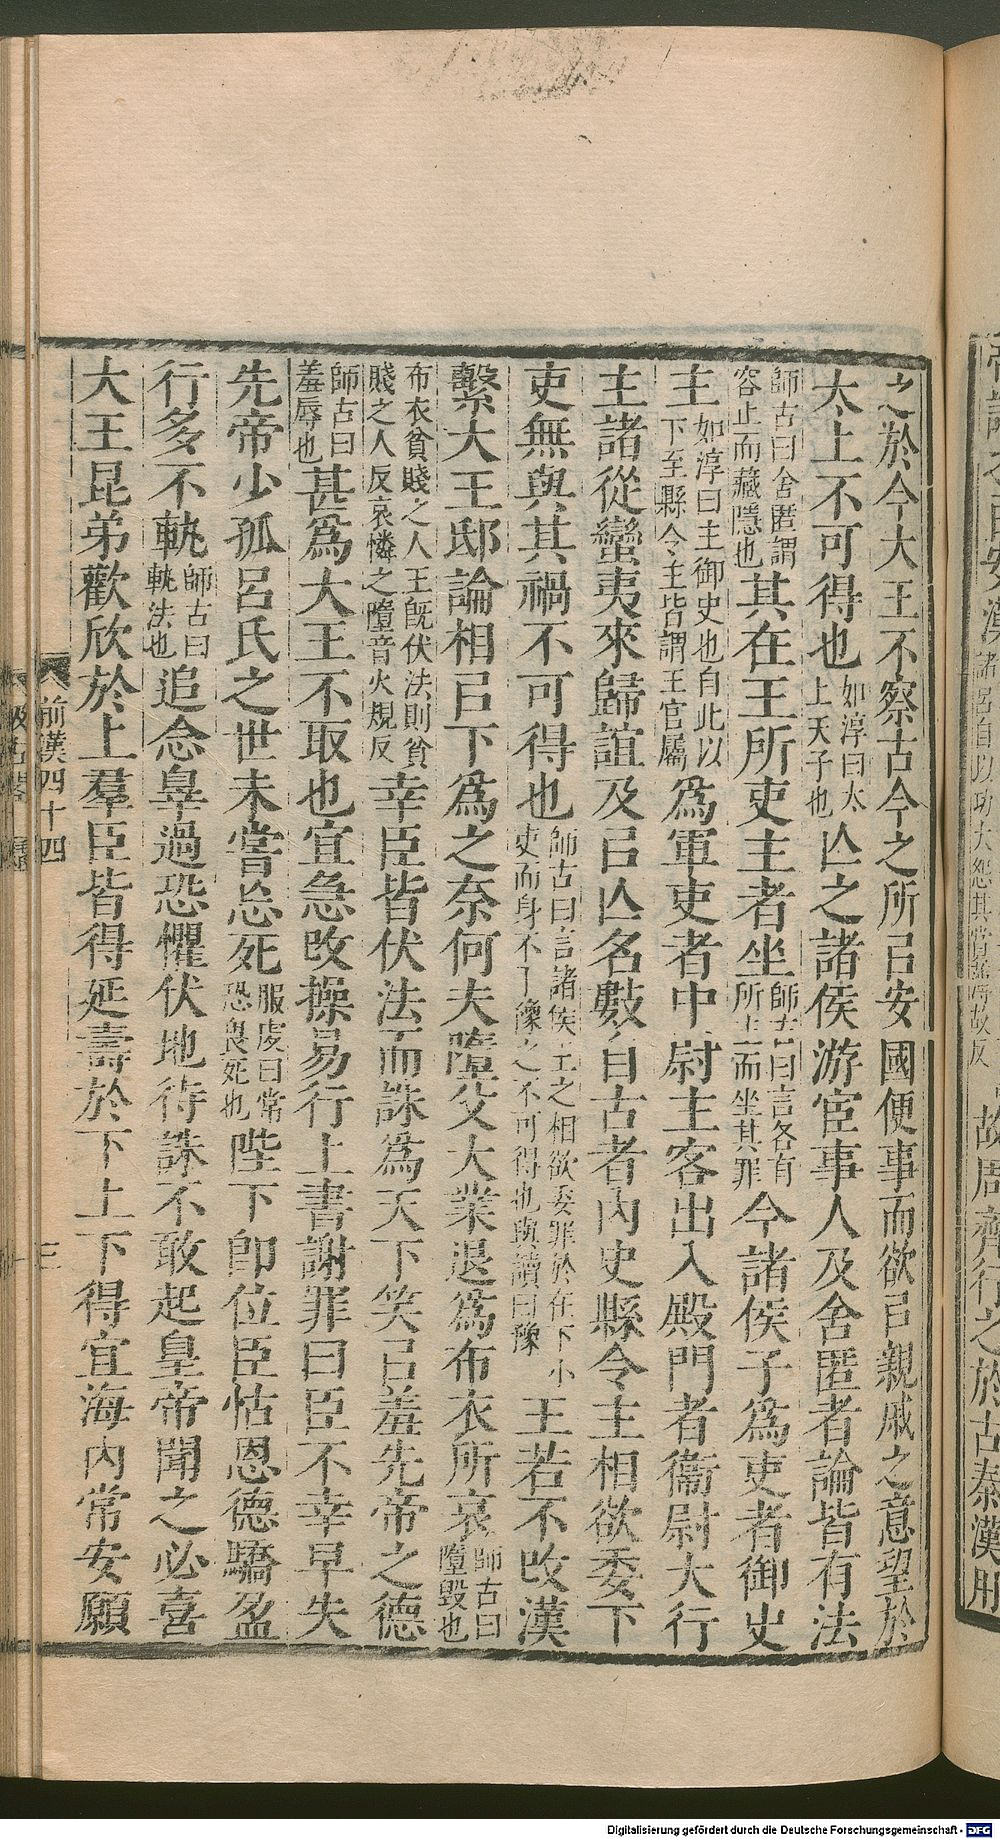 之於今大王不察古今之所㠯安國便事而欲㠯親戚之意望於
太上不可得也如淳曰太上天子也亾之諸侯游宦事人及舍匿者論皆有法
師古曰舍匿謂容止而藏隱也其在王所吏主者坐師古曰言各有所主而坐其罪今諸侯子爲吏者御史
主如淳曰主御史也自此以下至縣令主皆謂王官屬爲軍吏者中尉主客出入殿門者衞尉大行
主諸從蠻夷來歸誼及㠯亾名數自古者內史縣令主相欲委下
吏無與其禍不可得也師古曰言諸侯王之相欲委罪於在下小吏而身不了豫之不可得也與讀曰豫王若不改漢
繫大王邸論相㠯下爲之奈何夫墮父大業退爲布衣所哀師古曰墮毀也
布衣貧賤之人王旣伏法則貧賤之人反哀憐之墮音火規反幸臣皆伏法而誅爲天下笑㠯羞先帝之德
師古曰羞辱也甚爲大王不取也宜急改操易行上書謝罪曰臣不幸早失
先帝少孤呂氏之世未嘗忘死服虔曰常恐畏死也陛下卽位臣怙恩德驕盈
行多不軌師古曰軌法也追念辠過恐懼伏地待誅不敢起皇帝聞之必喜
大王昆弟歡欣於上羣臣皆得延壽於下上下得宜海內常安願
前漢四十四
三
故周齊行之於古秦漢用
Digitalisierung gefördert durch die Deutsche Forschungsgemeinschaft - DFG